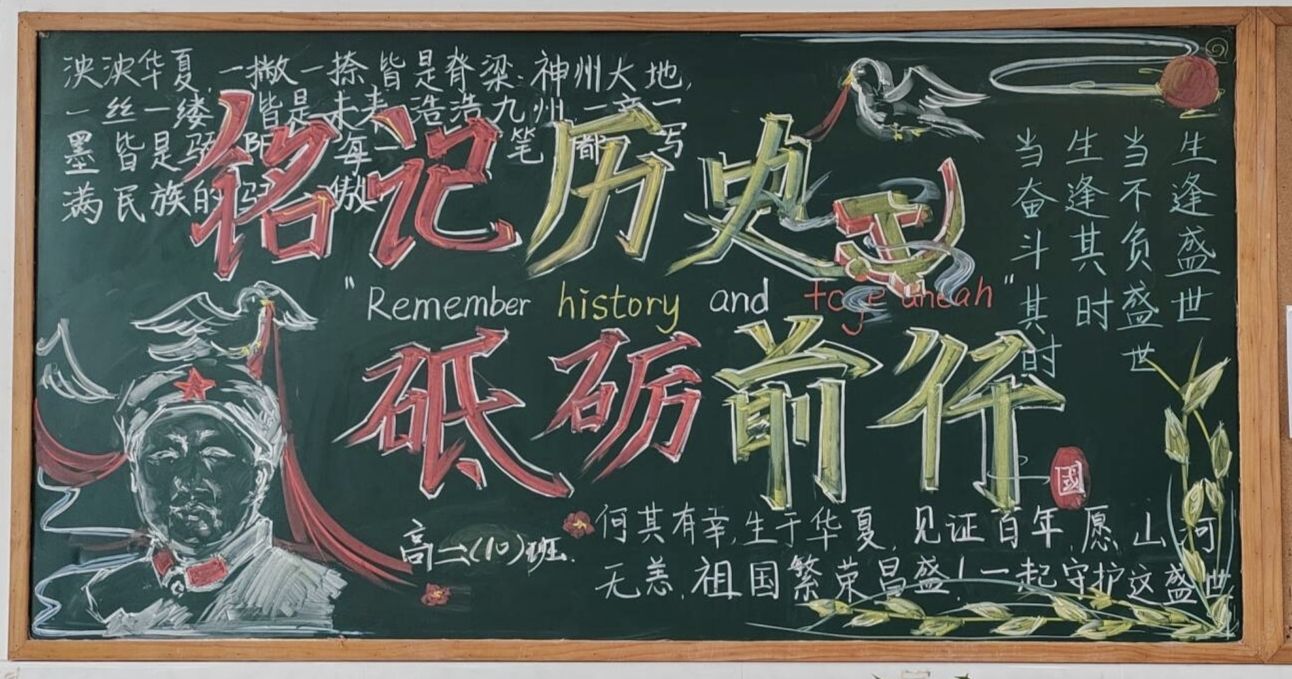 泱泱华夏,一撇一捺皆是脊梁.神州大地,
一丝一缕 皆是未来.浩浩九州,一
墨皆是 每一 笔 都 写
满民族的 傲
铭记历史
"Remember history and
砥砺前行
生逢盛世
当不负盛世
生逢其时
当奋斗其时
國
高二(10)班.
何其有幸,生于华夏,见证百年,愿山河
无恙,祖国繁荣昌盛!一起守护这盛世